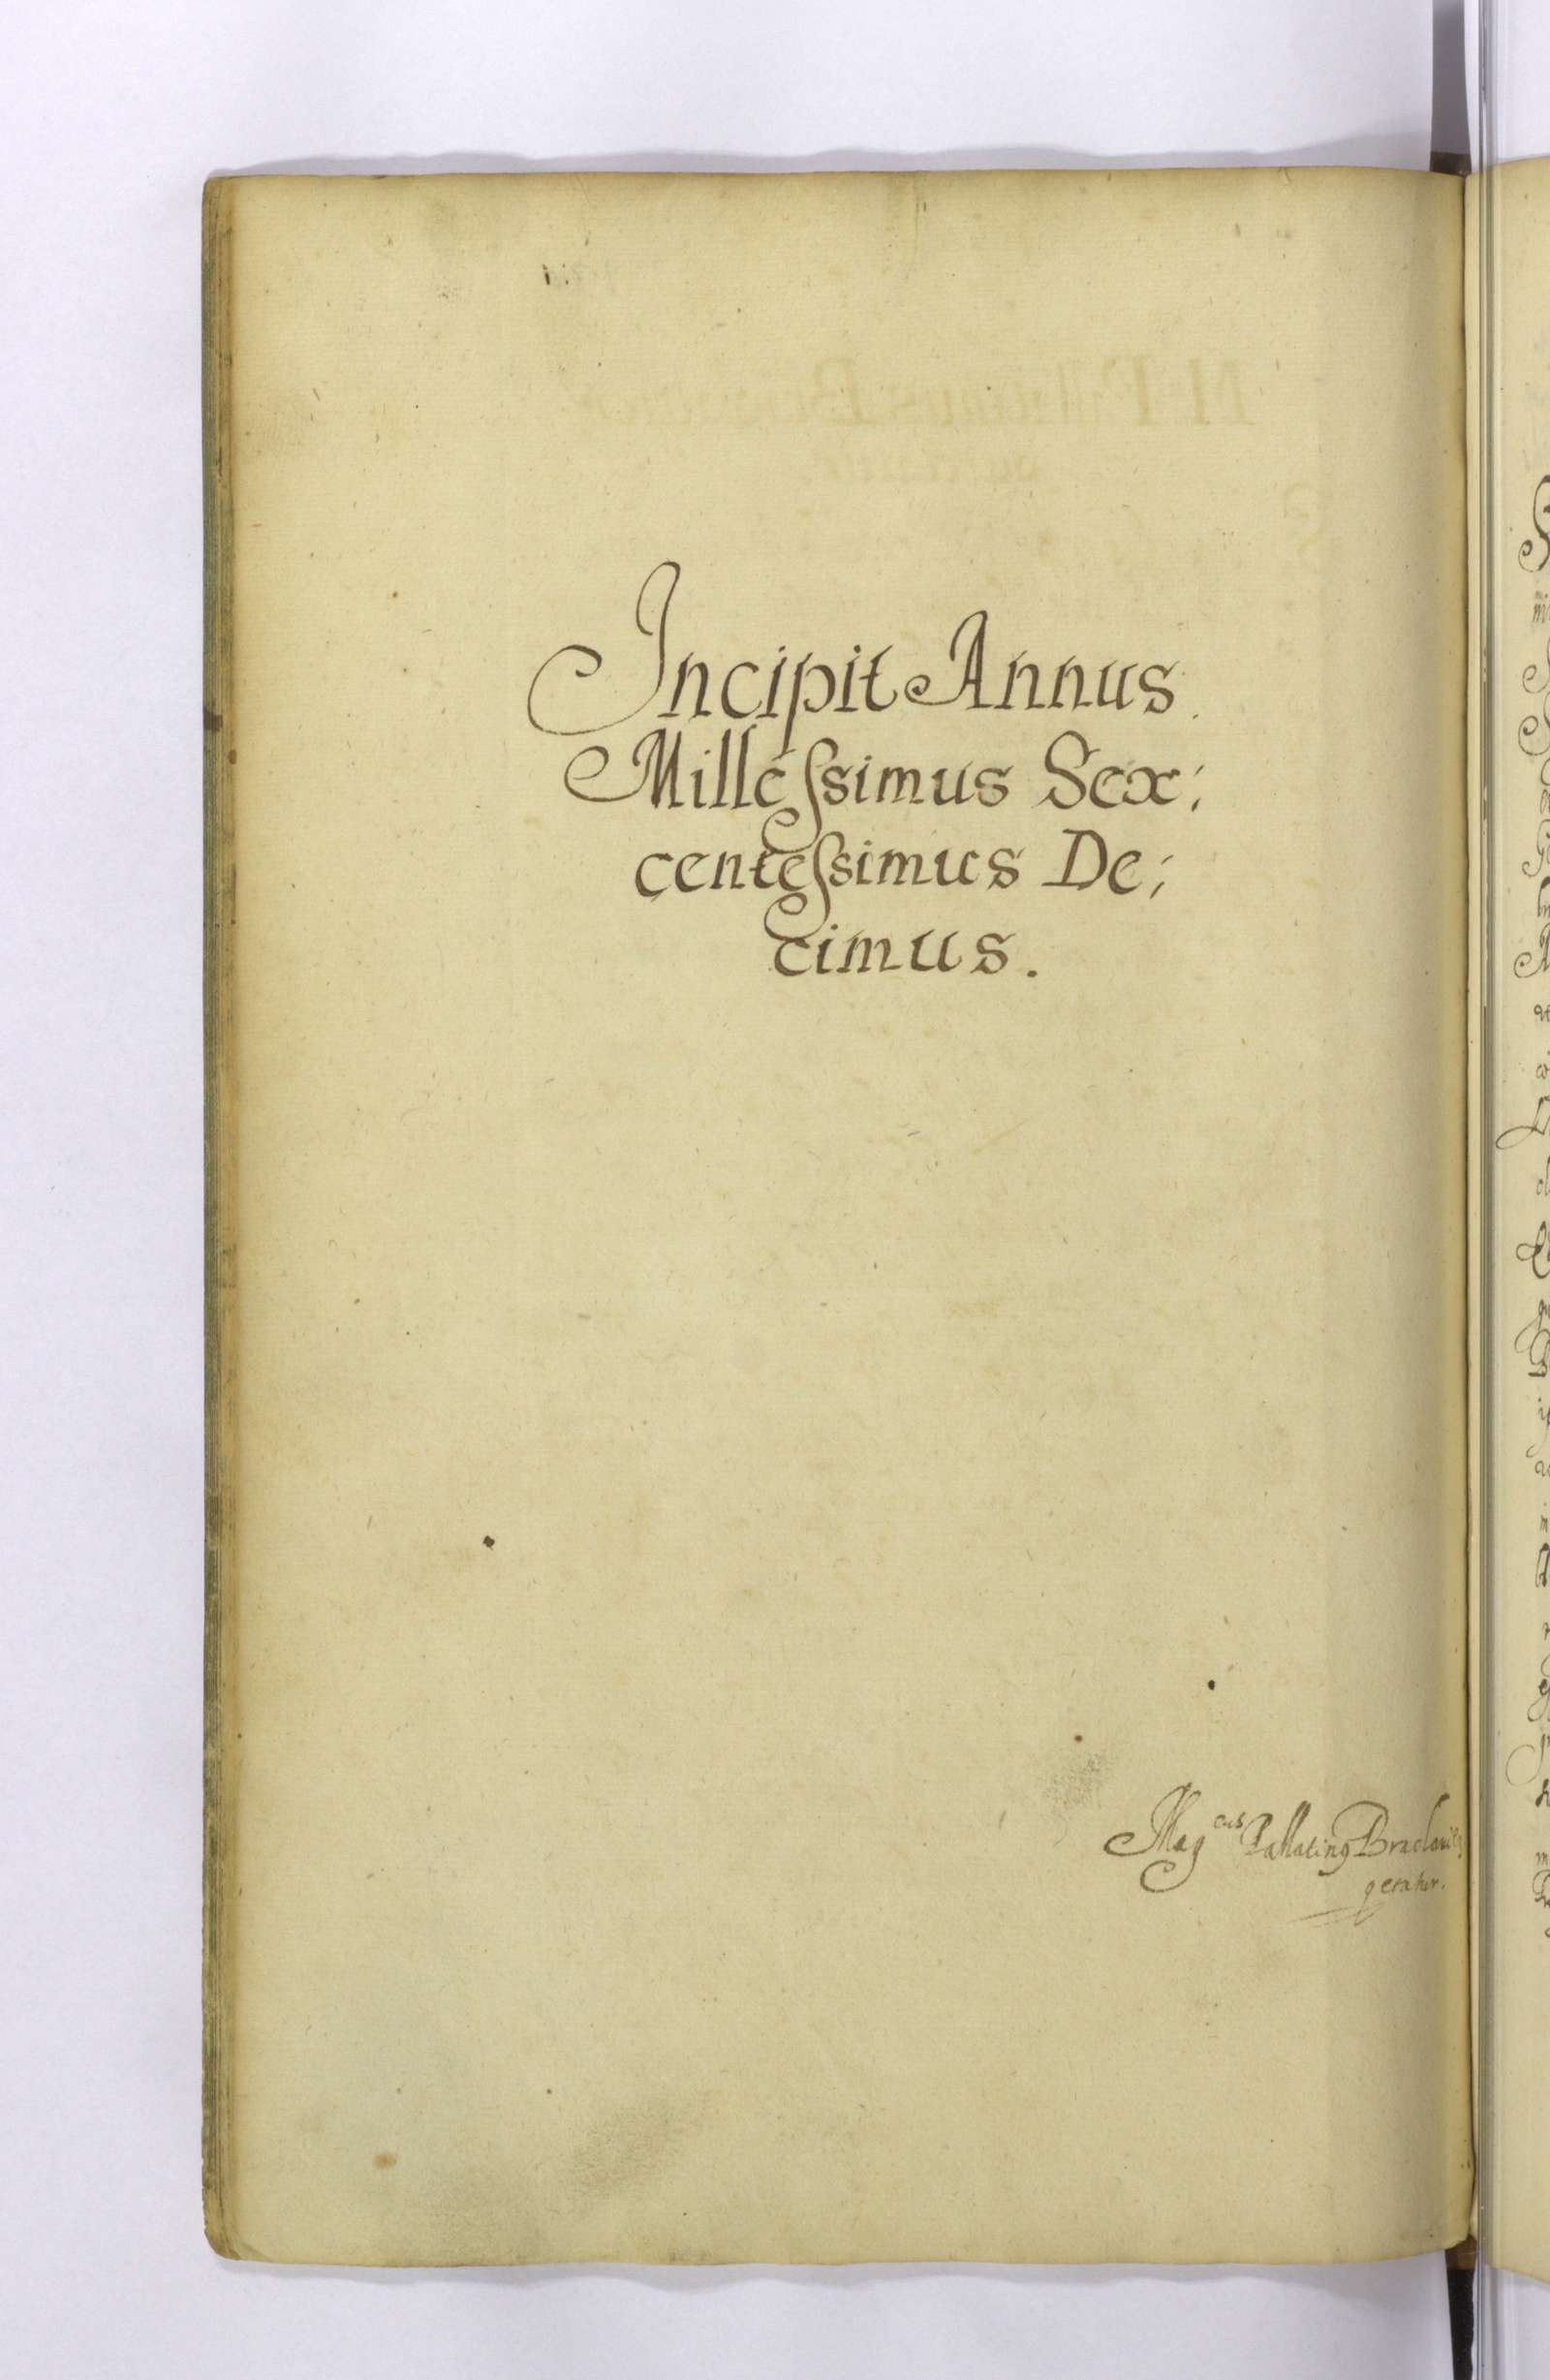 Incipit Annus
Millessimus Sex:
centessimus De:
cimus.
Mag cus Pallatinꝯ Braclaviẽ